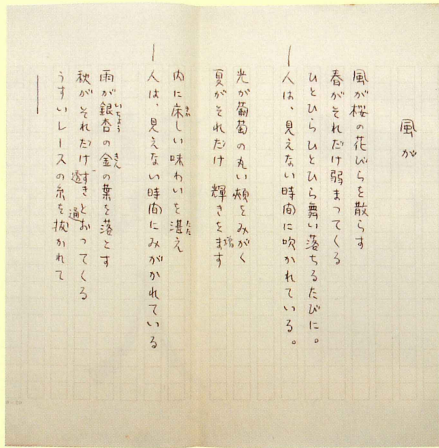 風が
風が桜の花びらを散らす
春がそれだけ弱まってくる
ひとひらひとひら舞い落ちるたびに。
―人は、見えない時間に吹かれている。
光が葡萄の丸い頬をみがく
夏がそれだけ 輝きをます
増
内に床しい味わいを湛え
ゆか
たた
―人は、見えない時間にみがかれている
雨が銀杏の金の葉を落とす
いちょう
きん
秋がそれだけ透きとおってくる
すき
通
うすいレースの糸を抜かれて
―